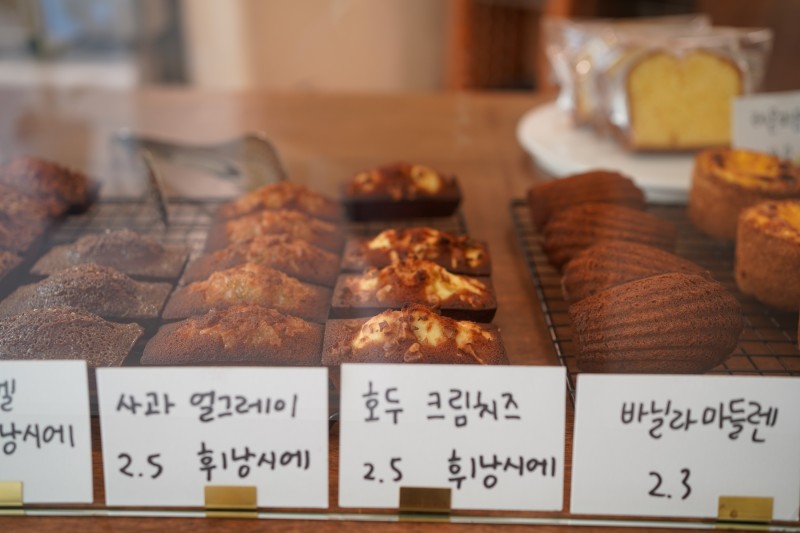 넬
낭시에
사과 얼그레이
2.5 휘낭시에
호두 크림치즈
2.5 휘낭시에
바닐라마들렌
2.3